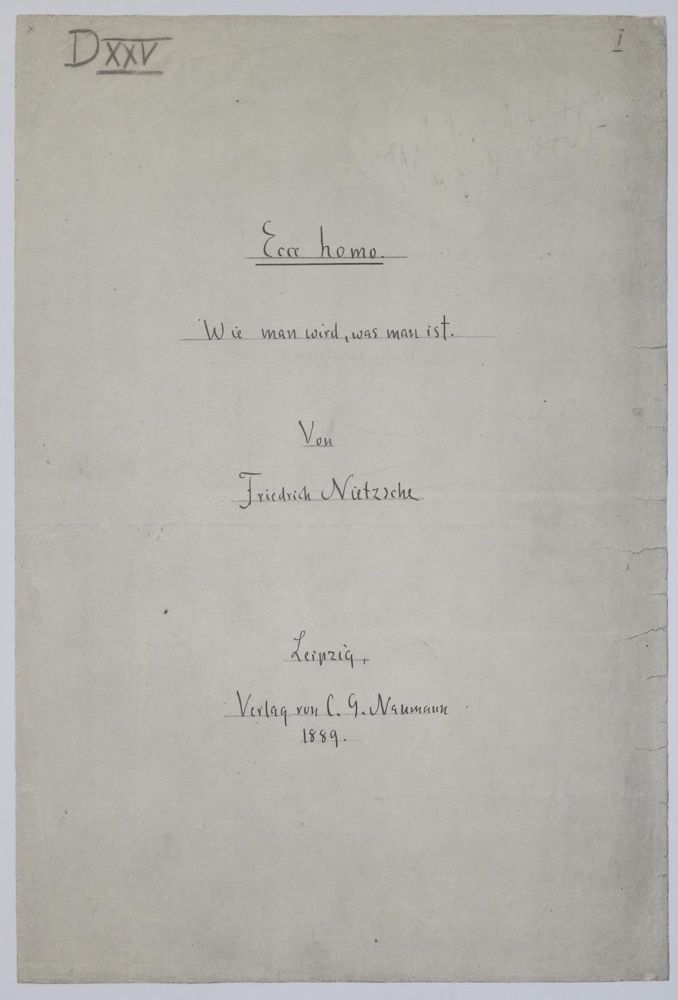 D XXV
I
Ecce homo.
Wie man wird, was man ist.
Von
Friedrich Nietzsche
Leipzig,
Verlag von C. G. Naumann
1889.